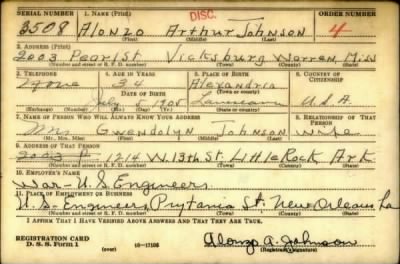 SERIAL NUMBER 1. NAME (Print) DISC. ORDER NUMBER
3508 Alonzo Arthur Johnson 4
(First) (Middle) (Last)
2. ADDRESS (Print)
2003 Pearl St Vicksburg Warren Miss
(Number and street or R. F. D. number) (Town) (County) (State)
3. TELEPHONE 4. AGE IN YEARS 5. PLACE OF BIRTH 6. COUNTRY OF CITIZENSHIP
None 34 Alexandria
DATE OF BIRTH (Town or county)
July 5 1905 Louisiana U.S.A.
(Exchange) (Number) (Mo.) (Day) (Yr.) (State or country)
7. NAME OF PERSON WHO WILL ALWAYS KNOW YOUR ADDRESS 8. RELATIONSHIP OF THAT PERSON
Mrs Gwendolyn Johnson wife
(Mr., Mrs., Miss) (First) (Middle) (Last)
9. ADDRESS OF THAT PERSON
2003 1214 W. 13th St. Little Rock Ark
(Number and street or R. F. D. number) (Town) (County) (State)
10. EMPLOYER'S NAME
War - U.S. Engineers
11. PLACE OF EMPLOYMENT OR BUSINESS
U.S. Engineers, Prytania St. New Orleans La
(Number and street or R. F. D. number) (Town) (County) (State)
I AFFIRM THAT I HAVE VERIFIED ABOVE ANSWERS AND THAT THEY ARE TRUE.
REGISTRATION CARD
D. S. S. Form 1 (over) 16-17105 Alonzo A. Johnson
(Registrant's signature)